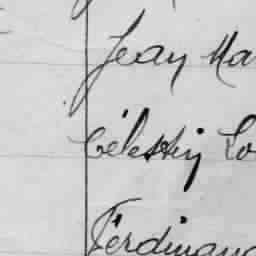 Jean Ma
Célestin Lo
Ferdinand